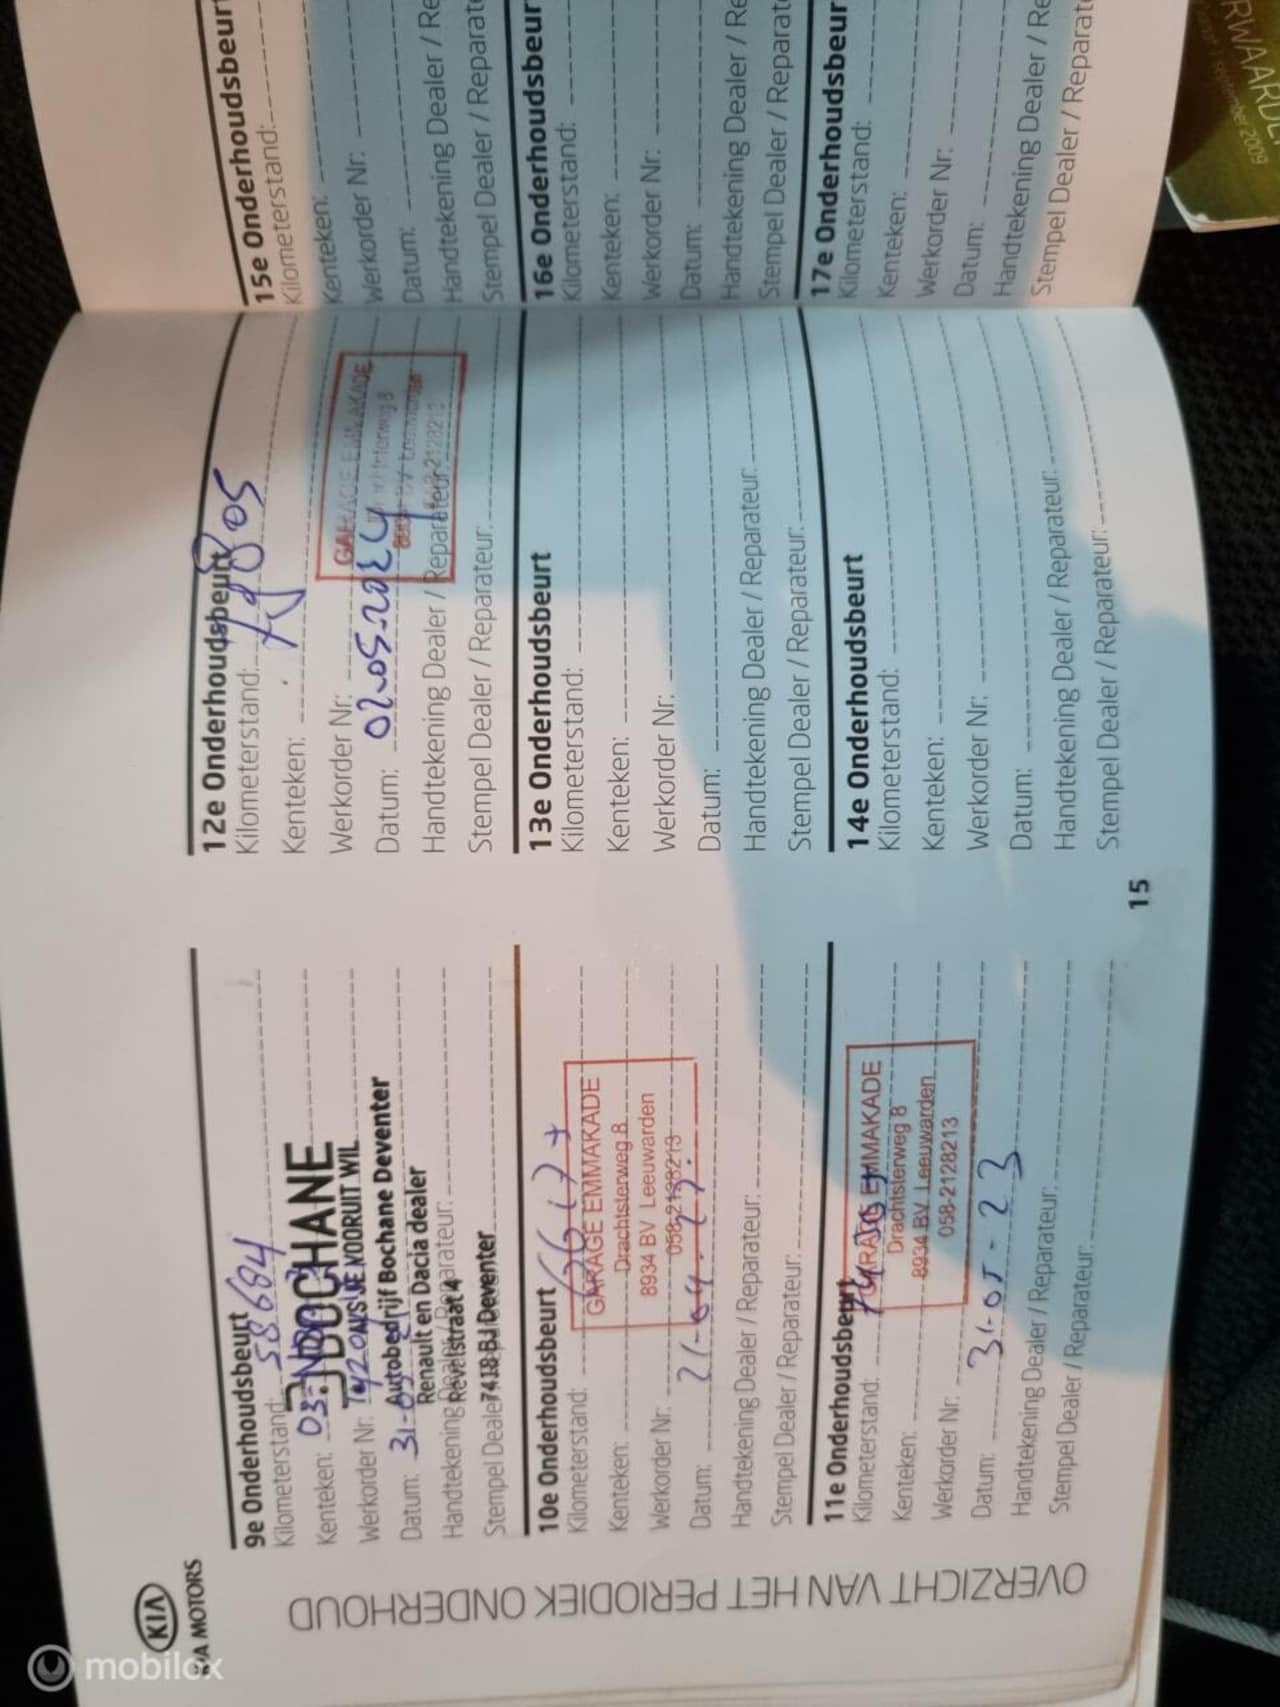 KIA
KIA MOTORS
OVERZICHT VAN HET PERIODIEK ONDERHOUD
9e Onderhoudsbeurt
Kilometerstand: 58684
Kenteken:
BOCHANE
ALS JE VOORUIT WIL
Werkorder Nr:
Autobedrijf Bochane Deventer
Datum: 31-
Renault en Dacia dealer
Handtekening Dealer / Reparateur:
Revelstraat 4
Stempel Dealer
7418 BJ Deventer
10e Onderhoudsbeurt
Kilometerstand:
GARAGE EMMAKADE
Kenteken:
Drachtsterweg 8
Werkorder Nr:
8934 BV Leeuwarden
058-2128213
Datum: 21-04-
Handtekening Dealer / Reparateur:
Stempel Dealer / Reparateur:
11e Onderhoudsbeurt
Kilometerstand:
GARAGE EMMAKADE
Kenteken:
Drachtsterweg 8
Werkorder Nr:
8934 BV Leeuwarden
058-2128213
Datum: 31-05-23
Handtekening Dealer / Reparateur:
Stempel Dealer / Reparateur:
12e Onderhoudsbeurt
Kilometerstand:
Kenteken:
GARAGE EMMAKADE
Werkorder Nr:
Datum: 02-05-2024
Handtekening Dealer / Reparateur:
Stempel Dealer / Reparateur:
13e Onderhoudsbeurt
Kilometerstand:
Kenteken:
Werkorder Nr:
Datum:
Handtekening Dealer / Reparateur:
Stempel Dealer / Reparateur:
14e Onderhoudsbeurt
Kilometerstand:
Kenteken:
Werkorder Nr:
Datum:
Handtekening Dealer / Reparateur:
Stempel Dealer / Reparateur:
15
15e Onderhoudsbeurt
Kilometerstand:
Kenteken:
Werkorder Nr:
Datum:
Handtekening Dealer / Re
Stempel Dealer / Reparat
16e Onderhoudsbeur
Kilometerstand:
Kenteken:
Werkorder Nr:
Datum:
Handtekening Dealer / Re
Stempel Dealer / Reparat
17e Onderhoudsbeur
Kilometerstand:
Kenteken:
Werkorder Nr:
Datum:
Handtekening Dealer / Re
Stempel Dealer / Reparat
RWAARDE
september 2009
mobilox